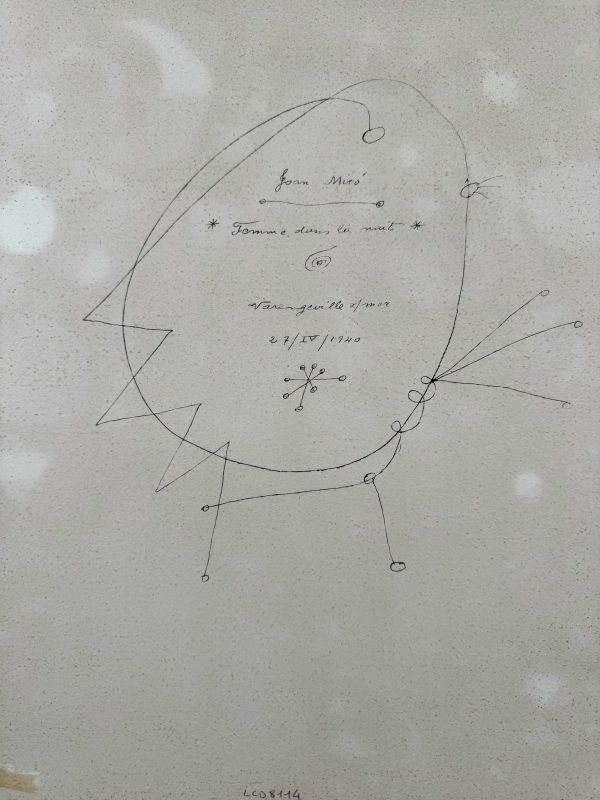 Joan Miró
* Femme dans la nuit *
Varengeville s/mer
27/IV/1940
LCD8114